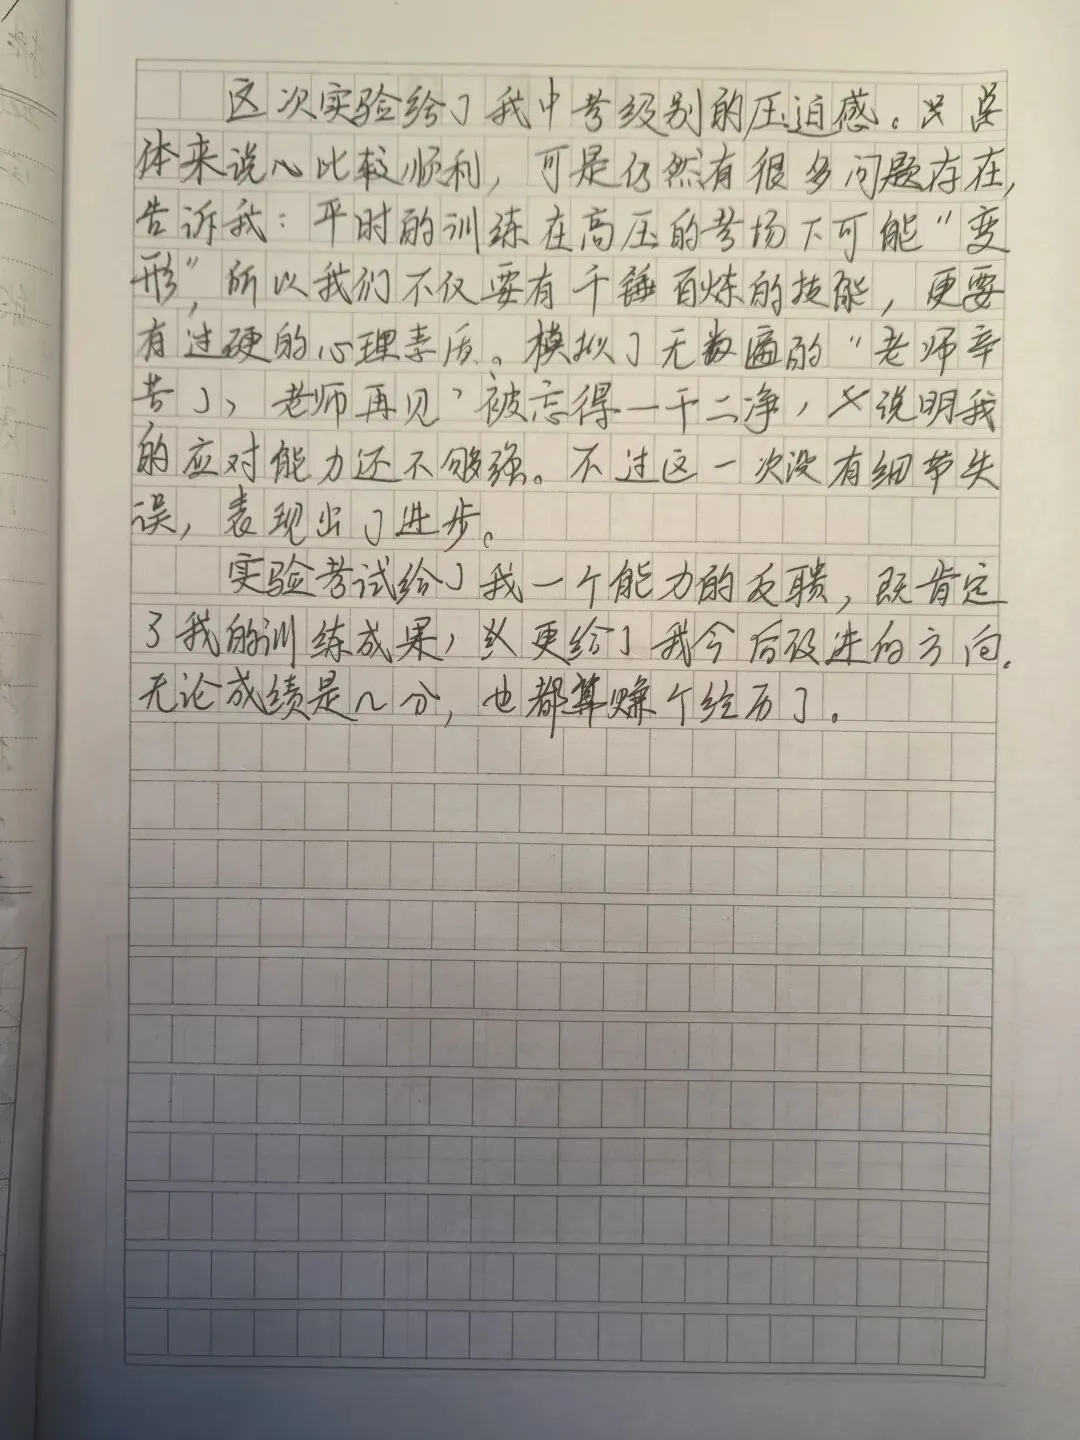 这次实验给了我中考级别的压迫感。总
体来说心比较顺利，可是仍然有很多问题存在，
告诉我：平时的训练在高压的考场下可能“变
形”，所以我们不仅要有千锤百炼的技能，更要
有过硬的心理素质。模拟了无数遍的“老师辛
苦了，老师再见”被忘得一干二净，说明我
的应对能力还不够强。不过这一次没有细节失
误，表现出了进步。
实验考试给了我一个能力的反馈，既肯定
了我的训练成果，更给了我今后改进的方向。
无论成绩是几分，也都算赚个经历了。